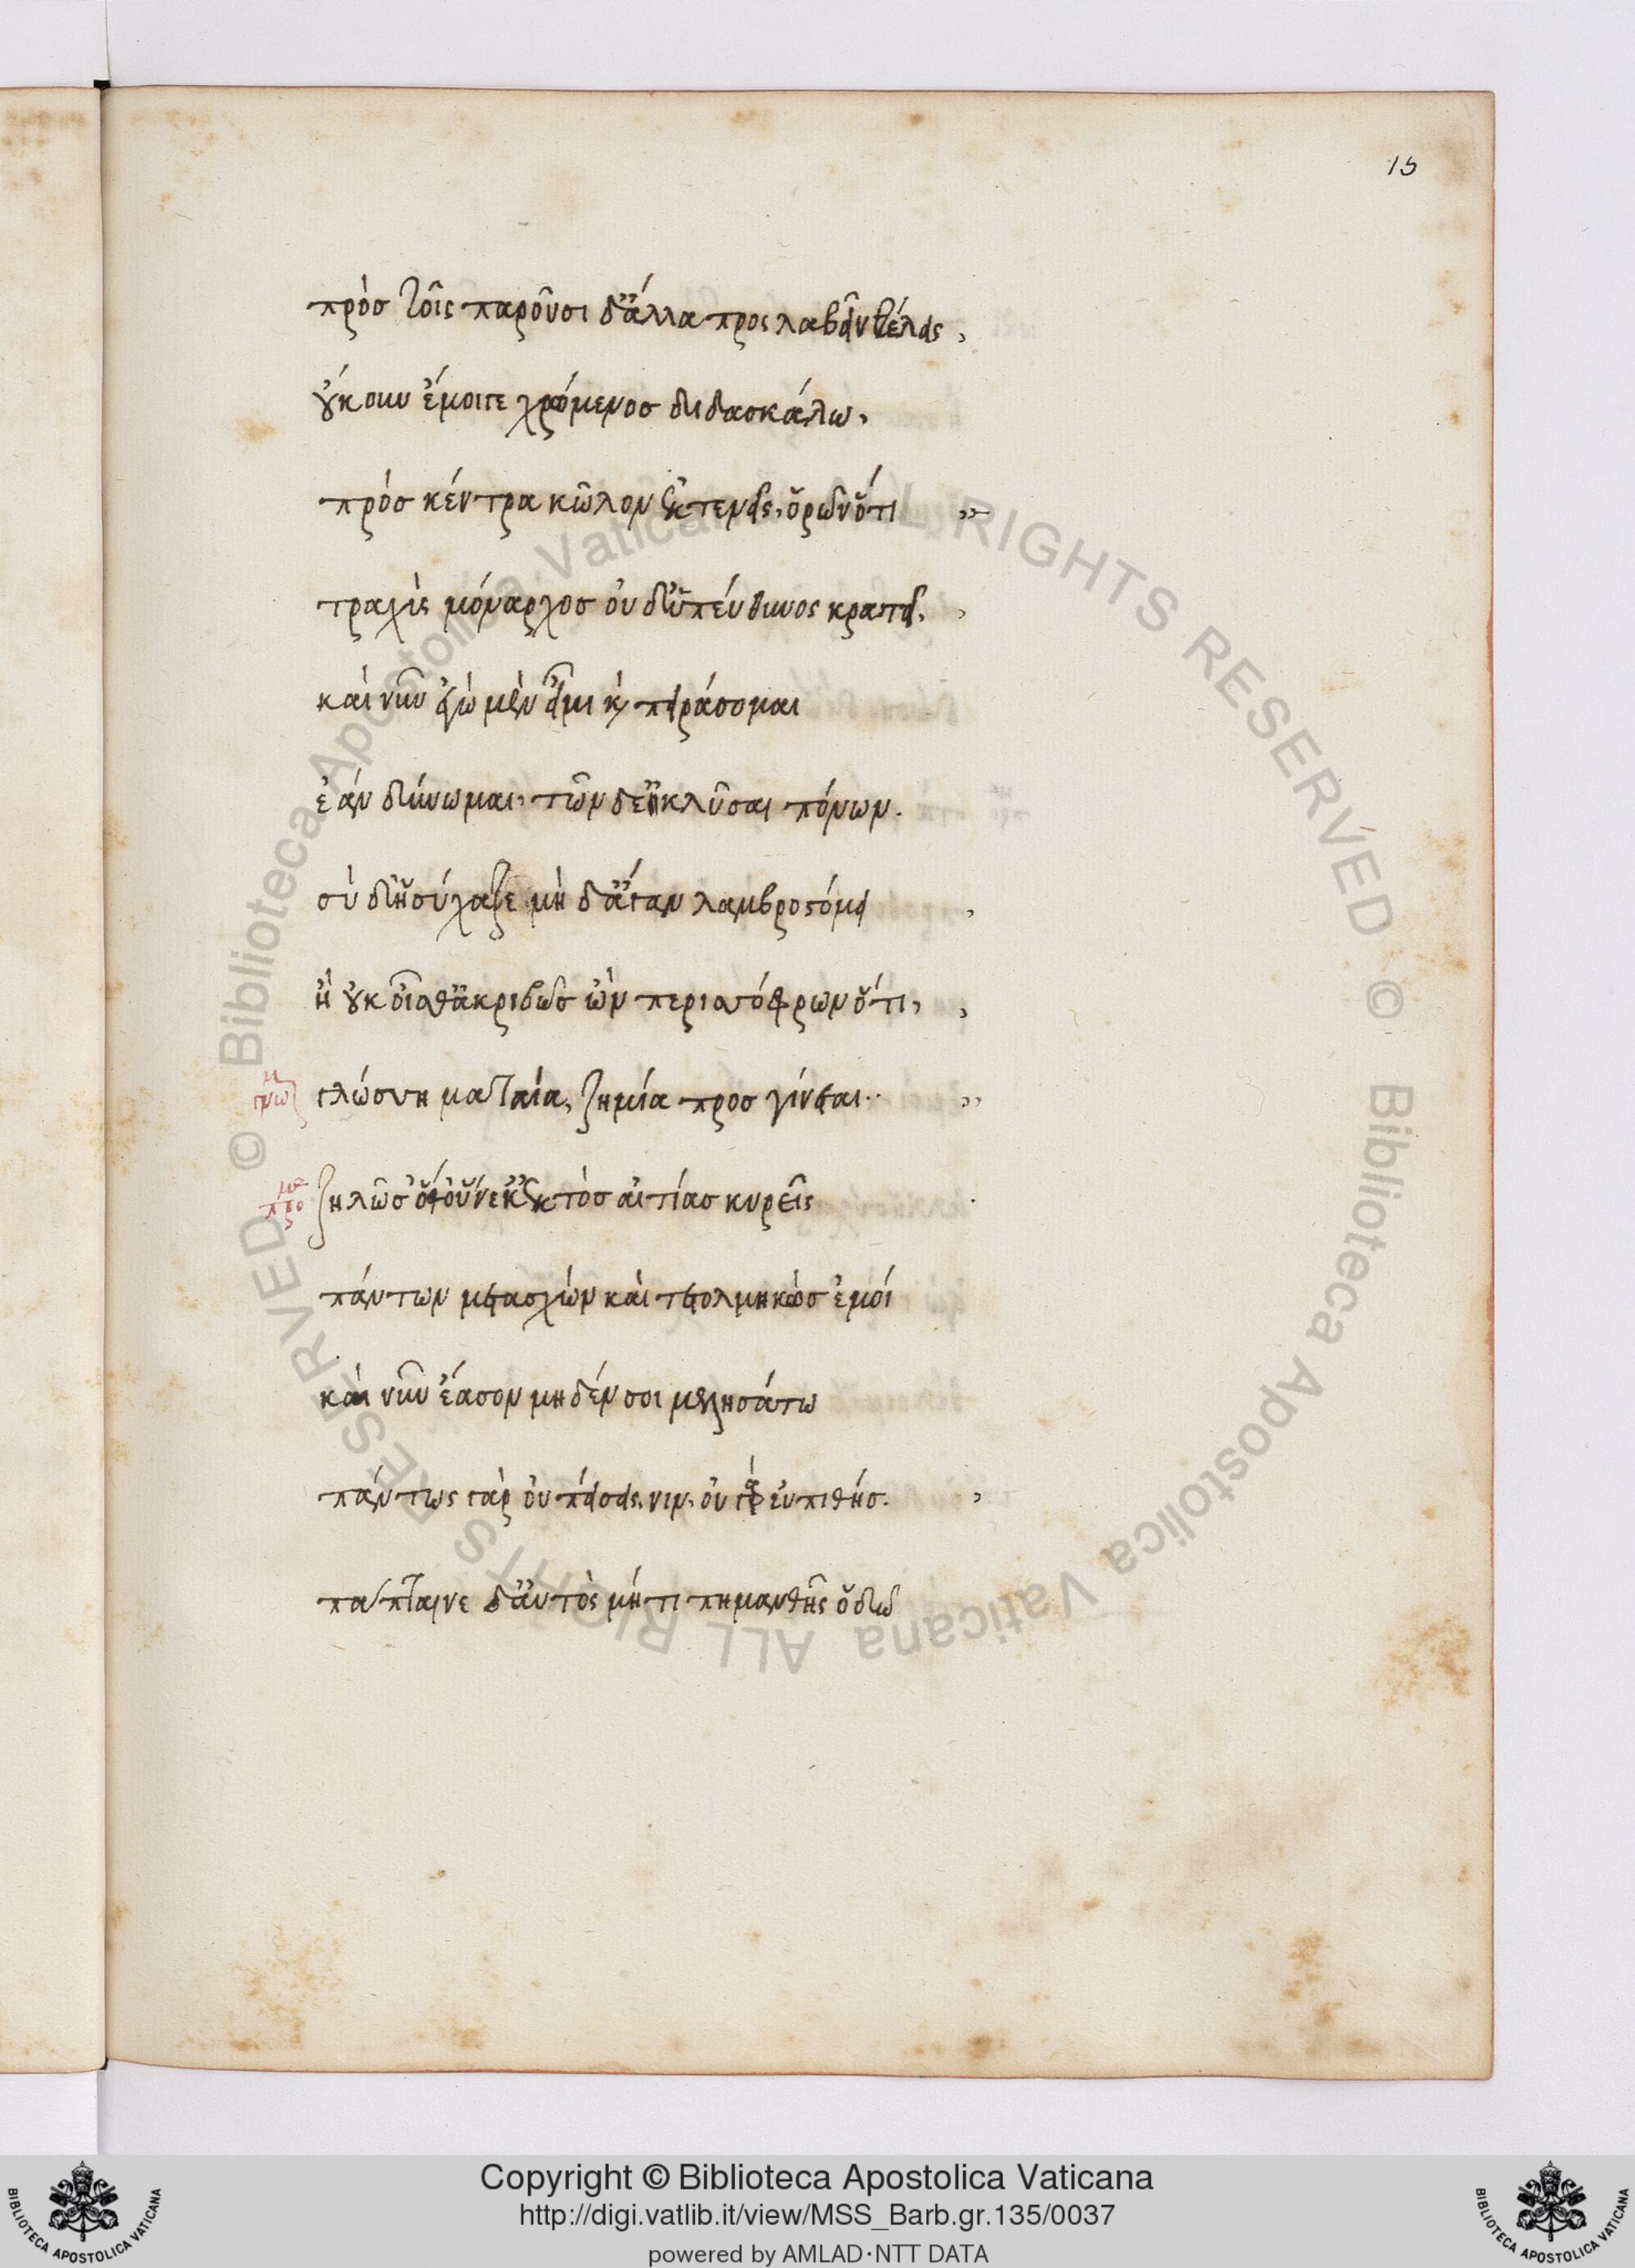 15
πρὸσ τοῖς παροῦσι δ' ἄλλα προςλαβεῖν θέλεις,
οὔκουν ἔμοιγε χρώμενοσ διδασκάλω,
πρὸσ κέντρα κῶλον ἐκτενεῖς, ὁρῶν ὅτι
τραχὺς μόναρχοσ οὐδ' ὑπεύθυνος κρατεῖ,
καὶ νῦν ἐγὼ μὲν εἶμι καὶ πειράσομαι
ἐὰν δύνωμαι, τῶνδέ σ' ἐκλῦσαι πόνων.
σὺ δ' ἡσύχαζε μὴ δ' ἄγαν λαβροστόμει
ἢ οὐκ οἶσθ' ἀκριβῶσ ὢν περισσόφρων ὅτι,
γλώσση ματαία, ζημία προσγίνεται
ζηλῶ σ' ὁθ' οὕνεκ' ἐκτὸσ αἰτίασ κυρεῖς
πάντων μετασχὼν καὶ τετολμηκὼσ ἐμοί
καὶ νῦν ἔασον μηδέν σοι μελησάτω
πάντως γὰρ οὐ πείσεις νιν, οὐ γὰρ εὐπιθήσ.
πάπταινε δ' αὐτὸς μή τι πημανθῆς ὁδῶ
© Biblioteca Apostolica Vaticana ALL RIGHTS RESERVED © Biblioteca Apostolica Vaticana ALL RIGHTS RESERVED
Copyright © Biblioteca Apostolica Vaticana
http://digi.vatlib.it/view/MSS_Barb.gr.135/0037
powered by AMLAD·NTT DATA
BIBLIOTECA APOSTOLICA VATICANA
BIBLIOTECA APOSTOLICA VATICANA